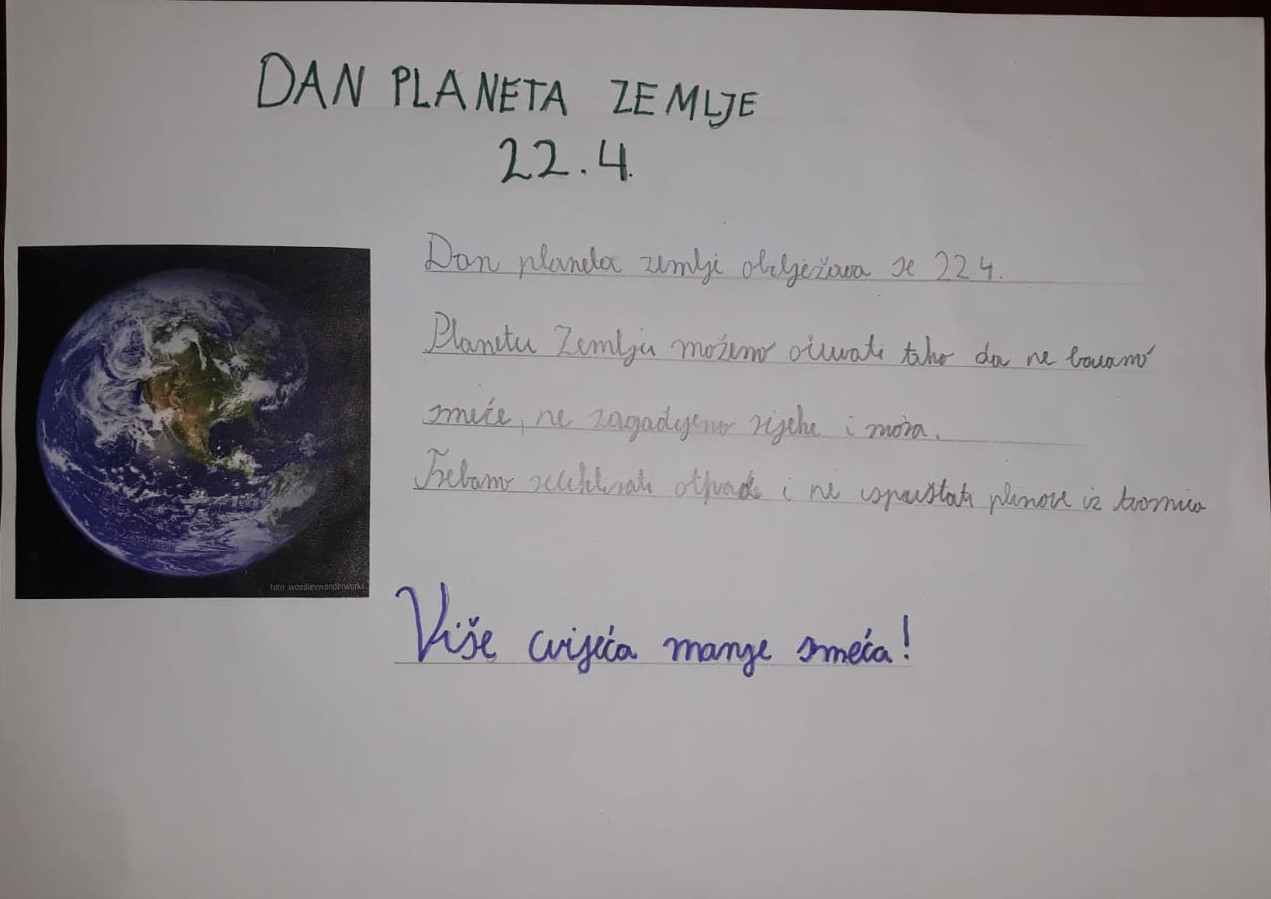 DAN PLANETA ZEMLJE
22.4.
Dan planeta zemlje obilježava se 22 4.
Planetu Zemlju možemo očuvati tako da ne bacamo
smeće, ne zagadujemo rijeke i mora.
Trebamo reciklirati otpad i ne ispuštati plinove iz tvornica
Više cvijeća manje smeća!
foto: woodleywonderworks